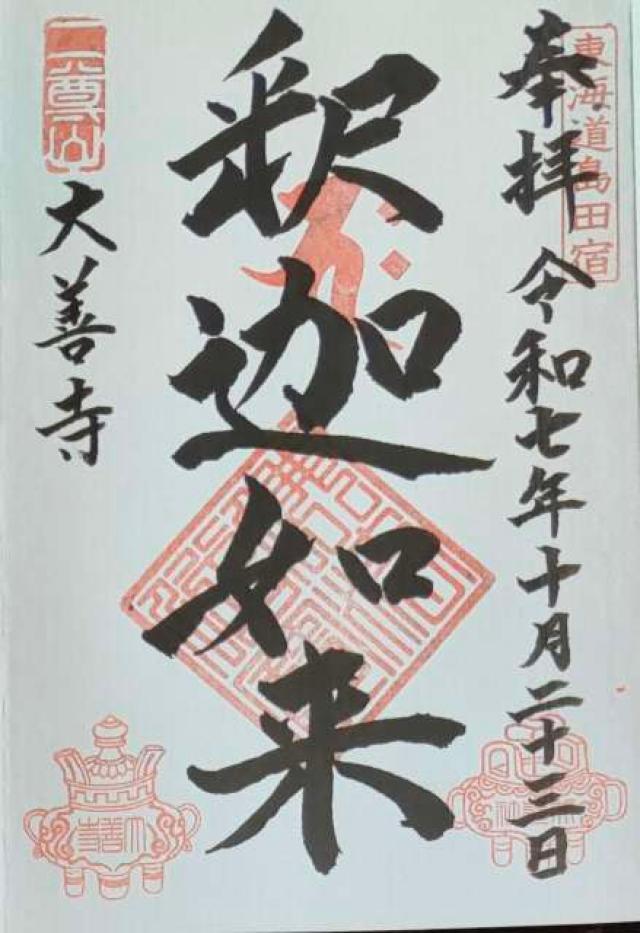 奉拝
東海道島田宿
令和七年十月二十三日
釈迦如来
二尊山
大善寺